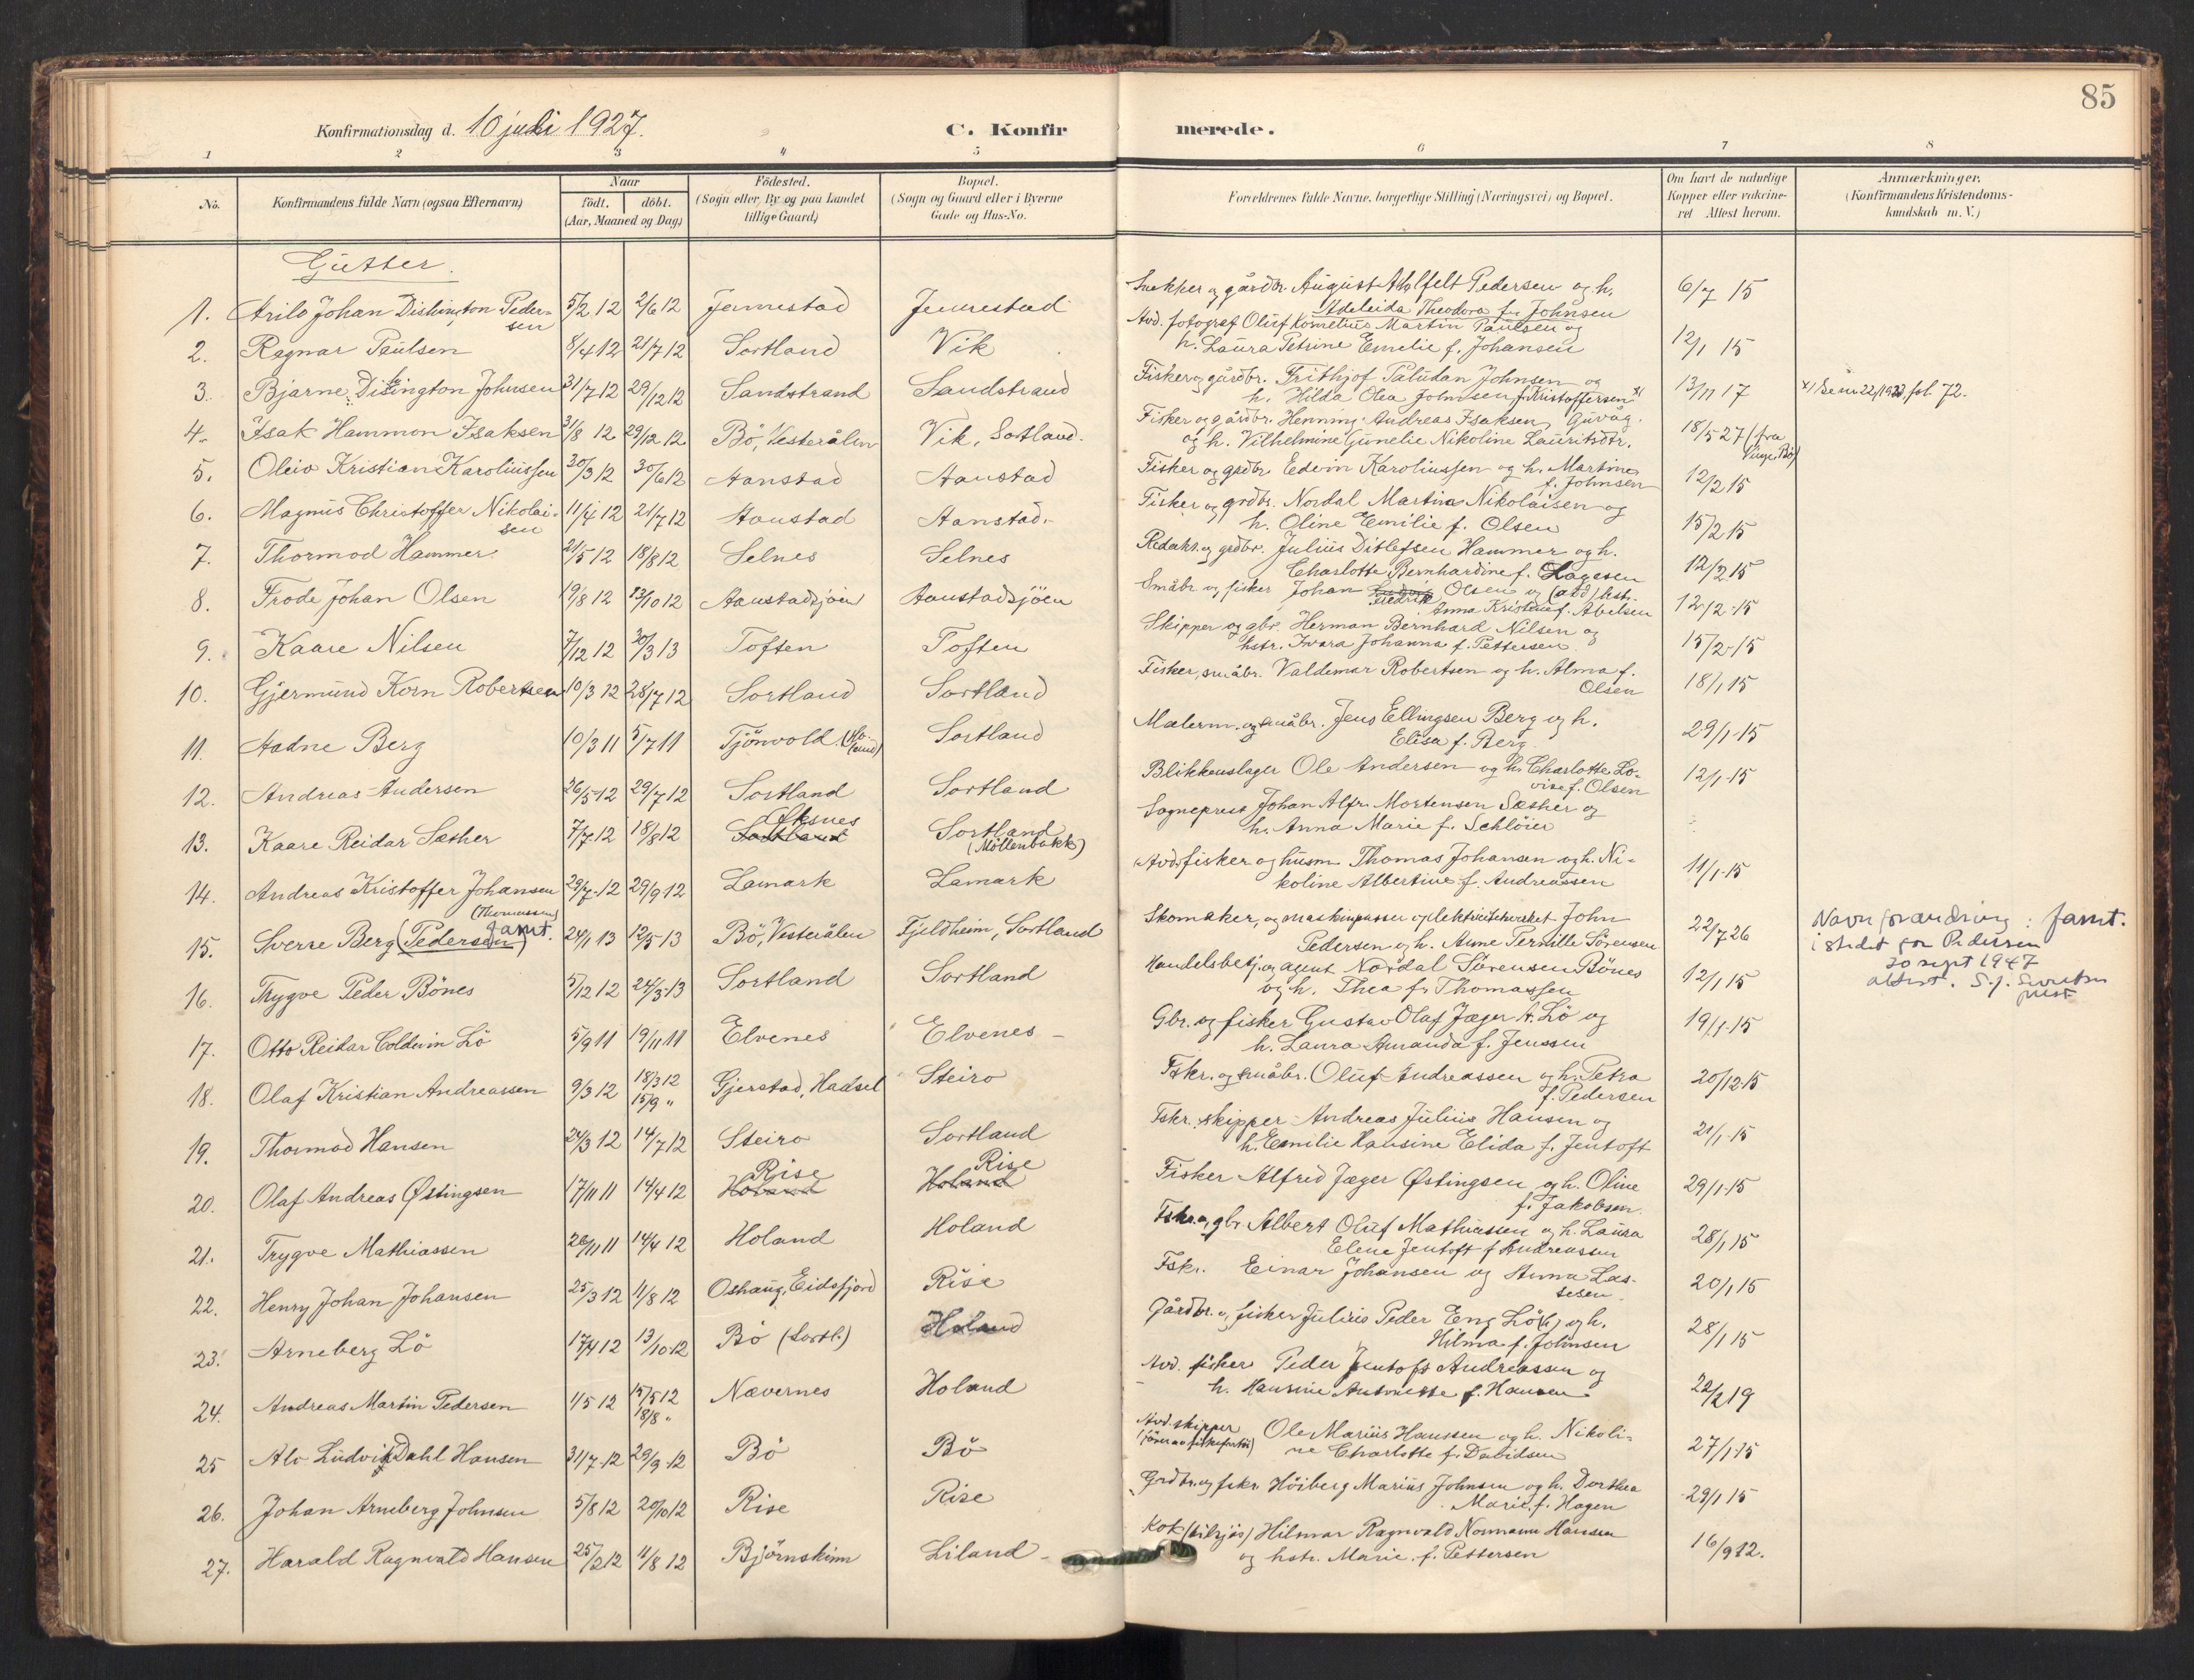 85
Konfirmationsdag d. 10 juli 1927. C. Konfirmerede.
1 2 3 4 5 6 7 8
No. Konfirmandens fulde Navn (ogsaa Efternavn) Naar født. døbt. (Aar, Maaned og Dag) Fødested. (Sogn eller By og paa Landet tillige Gaard) Bopæl. (Sogn og Gaard eller i Byerne Gade og Hus-No. Forældrenes fulde Navne, borgerlige Stilling (Næringsvei) og Bopæl. Om havt de naturlige Kopper eller vaccineret Attest herom. Anmærkninger. (Konfirmandens Kristendomskundskab m. V.)
Gutter.
1. Arild Johan Dishington Pedersen 5/2 12 2/6 12 Jennestad Jennestad Snekker og gårdbr. August Ahlfelt Pedersen og h. Adeleida Theodora f. Johnsen 6/7 15
2. Ragnar Paulsen 8/4 12 21/7 12 Sortland Vik Avd. fotograf Oluf Kornelius Martin Paulsen og h. Laura Petrine Emelie f. Johansen 12/1 15
3. Bjarne Dishington Johnsen 31/7 12 29/12 12 Sandstrand Sandstrand Fisker og gårdbr. Frithjof Paludan Johnsen og h. Hilda Olea Johnsen f. Kristoffersen x) 13/11 17 x) Se nr 22/1923, fol. 72.
4. Isak Hammon Isaksen 31/8 12 29/12 12 Bö, Vesterålen Vik, Sortland. Fisker og gårdbr. Henning Andreas Isaksen, Guvåg. og h. Vilhelmine Gunelie Nikoline Lauritsdtr. 18/5 27 (fra Vinje, Bö)
5. Oleiv Kristian Karoliussen 30/3 12 30/6 12 Aanstad Aanstad Fisker og grdbr. Edvin Karoliussen og h. Martine f. Johnsen 12/2 15
6. Magnus Christoffer Nikolaisen 11/4 12 21/7 12 Aanstad Aanstad. Fisker og grdbr. Nordal Martin Nikolaisen og h. Oline Emilie f. Olsen 15/2 15
7. Thormod Hammer 21/5 12 18/8 12 Selnes Selnes Redakt. og grdbr. Julius Ditlefsen Hammer og h. Charlotte Bernhardine f. Hagesen 12/2 15
8. Frode Johan Olsen 19/8 12 13/10 12 Aanstadsjöen Aanstadsjöen Småbr. og fisker Johan Fredrik Olsen og (avd) hstr. Anna Kristine f. Abelsen 12/2-15
9. Kaare Nilsen 7/12 12 30/3 13 Toften Toften Skipper og gbr. Herman Bernhard Nilsen og hstr. Ivara Johanna f. Pettersen 15/2-15
10. Gjermund Korn Robertsen 10/3 12 28/7 12 Sortland Sortland Fisker, småbr. Valdemar Robertsen og h. Alma f. Olsen 18/1 15
11. Hadne Berg 10/3 11 5/7 11 Tjönvold Sortland Malerm. og småbr. Jens Ellingsen Berg og h. Elisa f. Berg 29/1-15
12. Andreas Andersen 26/5-12 29/7 12 Sortland Sortland Blikkenslager Ole Andersen og h. Charlotte Lovise f. Olsen 12/1-15
13. Kaare Reidar Sæther 7/7-12 18/8 12 Øksnes Sortland (Möllenbakk) Sogneprest Johan Alfr. Mortensen Sæther og h. Anna Marie f. Schlöier
14. Andreas Kristoffer Johansen (Thomassen) 29/7-12 29/9 12 Lamark Lamark Avd. fisker og husm. Thomas Johansen og h. Nikoline Albertine f. Andreassen 11/1-15
15. Sverre Berg (Pedersen) Jamt. 24/1 13 12/5 13 Bö, Vesterålen Fjeldheim, Sortland Skomaker, og maskinpasser v/elektricitetsverket John Pedersen og h. Anne Pernille Sörensen 22/7 26 Navneforandring: Jamt. i stedet for Pedersen 20 sept 1947
16. Trygve Peder Bönes 5/12 12 24/3-13 Sortland Sortland Handelsbetj. og agent Nordal Sörensen Bönes og h. Thea f. Thomassen 12/1 15
17. Otto Reidar Coldevin Lö 5/9 11 19/11 11 Elvenes Elvenes Gbr. og fisker Gustav Olaf Jæger A. Lö og h. Laura Amanda f. Jenssen 19/1-15
18. Olaf Kristian Andreassen 9/3 12 18/3 12 15/9 " Gjerstad, Hadsel Steiro Fskr. og småbr. Oluf Andreassen og h. Petra f. Pedersen 20/12 15
19. Thormod Hansen 24/3 12 14/7 12 Steiro Sortland Fskr. skipper Andreas Julius Hansen og h. Emilie Hansine Elida f. Jentoft 21/1-15
20. Olaf Andreas Østingsen 17/11 11 14/4 12 Holand Rise Holand Rise Fisker Alfred Jæger Østingsen og h. Oline f. Jakobsen. 29/1-15
21. Trygve Mathiassen 26/11 11 14/4 12 Holand Holand Fskr. og gbr. Albert Oluf Mathiassen og h. Laura Elene Jentoft f Andreassen 28/1 15
22. Henry Johan Johansen 25/3 12 11/8 12 Oshaug, Eidsfjord Rise Fskr. Einar Johansen og Anna Lassesen. 20/1 15
23. Arneberg Lö 17/4 12 13/10-12 Bö (Sortl.) Holand Gårdbr. og fisker Julius Peder Eng Lö og h. Hilma f. Johnsen 28/1 15
24. Andreas Martin Pedersen 1/5 12 15/5 12 18/8 " Nævernes Holand Avd. fisker Peder Jentoft Andreassen og h. Hansine Antonette f. Hansen 22/2 19
25 Alv Ludvik Dahl Hansen 31/7-12 29/9-12 Bö Bö Avd. skipper Ole Marius Hanssen og h. Nikoline Charlotte f. Davidsen 27/1-15
26. Johan Arneberg Johnsen 5/8 12 20/10 12 Rise Rise Grdbr. og fskr. Höiberg Marius Johnsen og h. Dorthea Marie f. Hagen 29/1 15
27. Harald Ragnvald Hansen 25/2 12 11/8 12 Björnskinn Liland Kok (tilsjös) Hilmar Ragnvald Normann Hansen og hstr. Marie f. Pettersen 16/9 12.